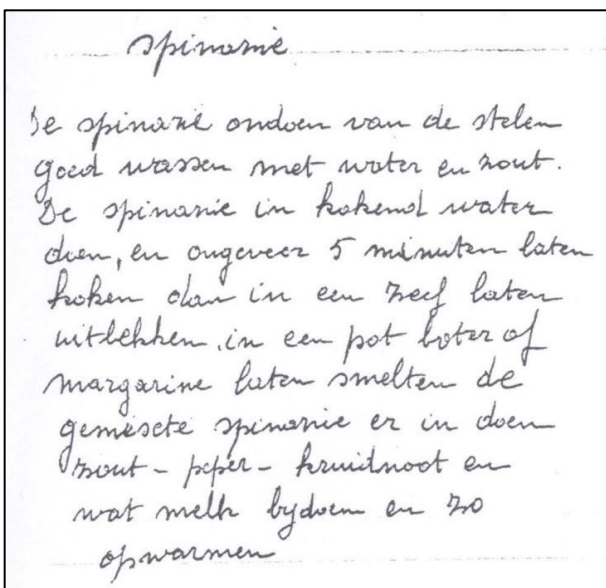 spinanie
De spinazie ondoen van de stelen
goed wassen met water en zout.
De spinanie in kokend water
doen, en ongeveer 5 minuten laten
koken dan in een zeef laten
uitlekken, in een pot boter of
margarine laten smelten de
gemixete spinanie er in doen
zout - peper - kruidnoot en
wat melk bijdoen en zo
opwarmen